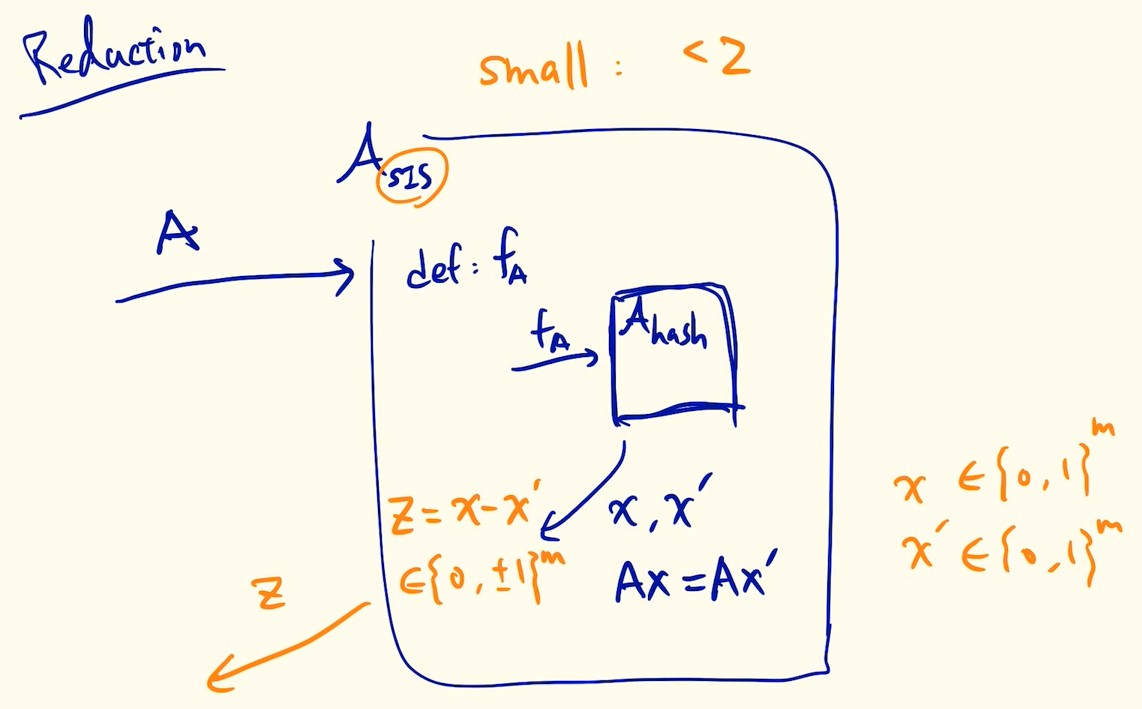 Reduction
small : < 2
A_SIS
A
def: f_A
f_A
A_hash
z = x - x'
∈ {0, ±1}^m
x, x'
Ax = Ax'
x ∈ {0, 1}^m
x' ∈ {0, 1}^m
z